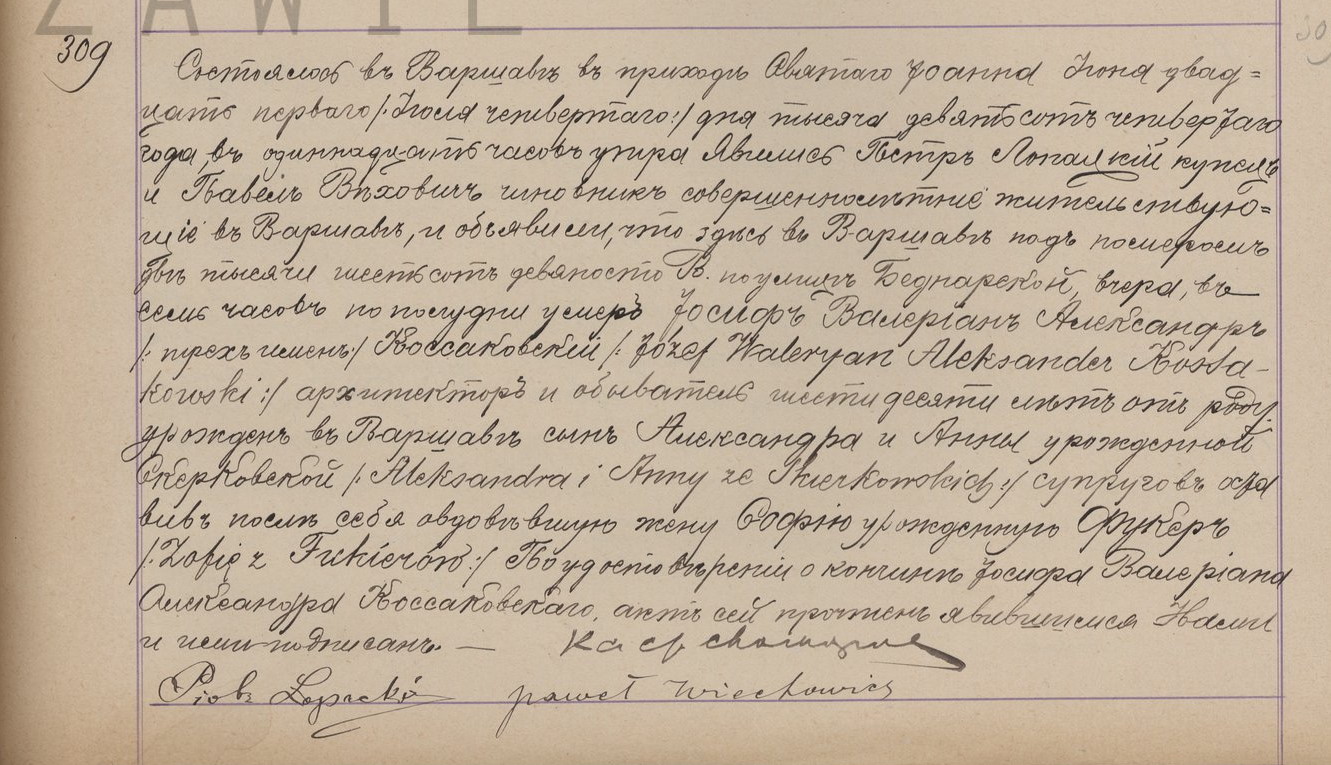 ZAWIE
309
Состоялось въ Варшавѣ въ приходѣ Святаго Іоанна Іюня двад=
цать перваго /:Іюля четвертаго:/ дня тысяча девятьсотъ четвертаго
года въ одиннадцать часовъ утра Явились Петръ Лопацкій купецъ
и Павелъ Вѣховичъ чиновникъ совершеннолѣтніе жительствую=
щіе въ Варшавѣ, и объявили, что здѣсь въ Варшавѣ подъ номеромъ
двѣ тысячи шестьсотъ девяносто В. по улицѣ Беднарской, вчера, въ
семь часовъ по полудни умеръ Іосифъ Валеріанъ Александръ
/: трехъ именъ:/ Коссаковскій /: Józef Waleryan Aleksander Kossa-
kowski :/ архитекторъ и обыватель шестидесяти лѣтъ отъ роду,
урожденъ въ Варшавѣ сынъ Александра и Анны урожденной
Скерковской /: Aleksandra i Anny ze Skierkowskich :/ супруговъ оста
вивъ послѣ себя овдовѣвшую жену Софію урожденную Фукеръ
/: Zofię z Fukierów :/ По удостовѣреніи о кончинѣ Іосифа Валеріана
Александра Коссаковскаго, актъ сей прочтенъ явившимся Нами
и ими подписанъ. —
Piotr Łopacki paweł Wiechowicz